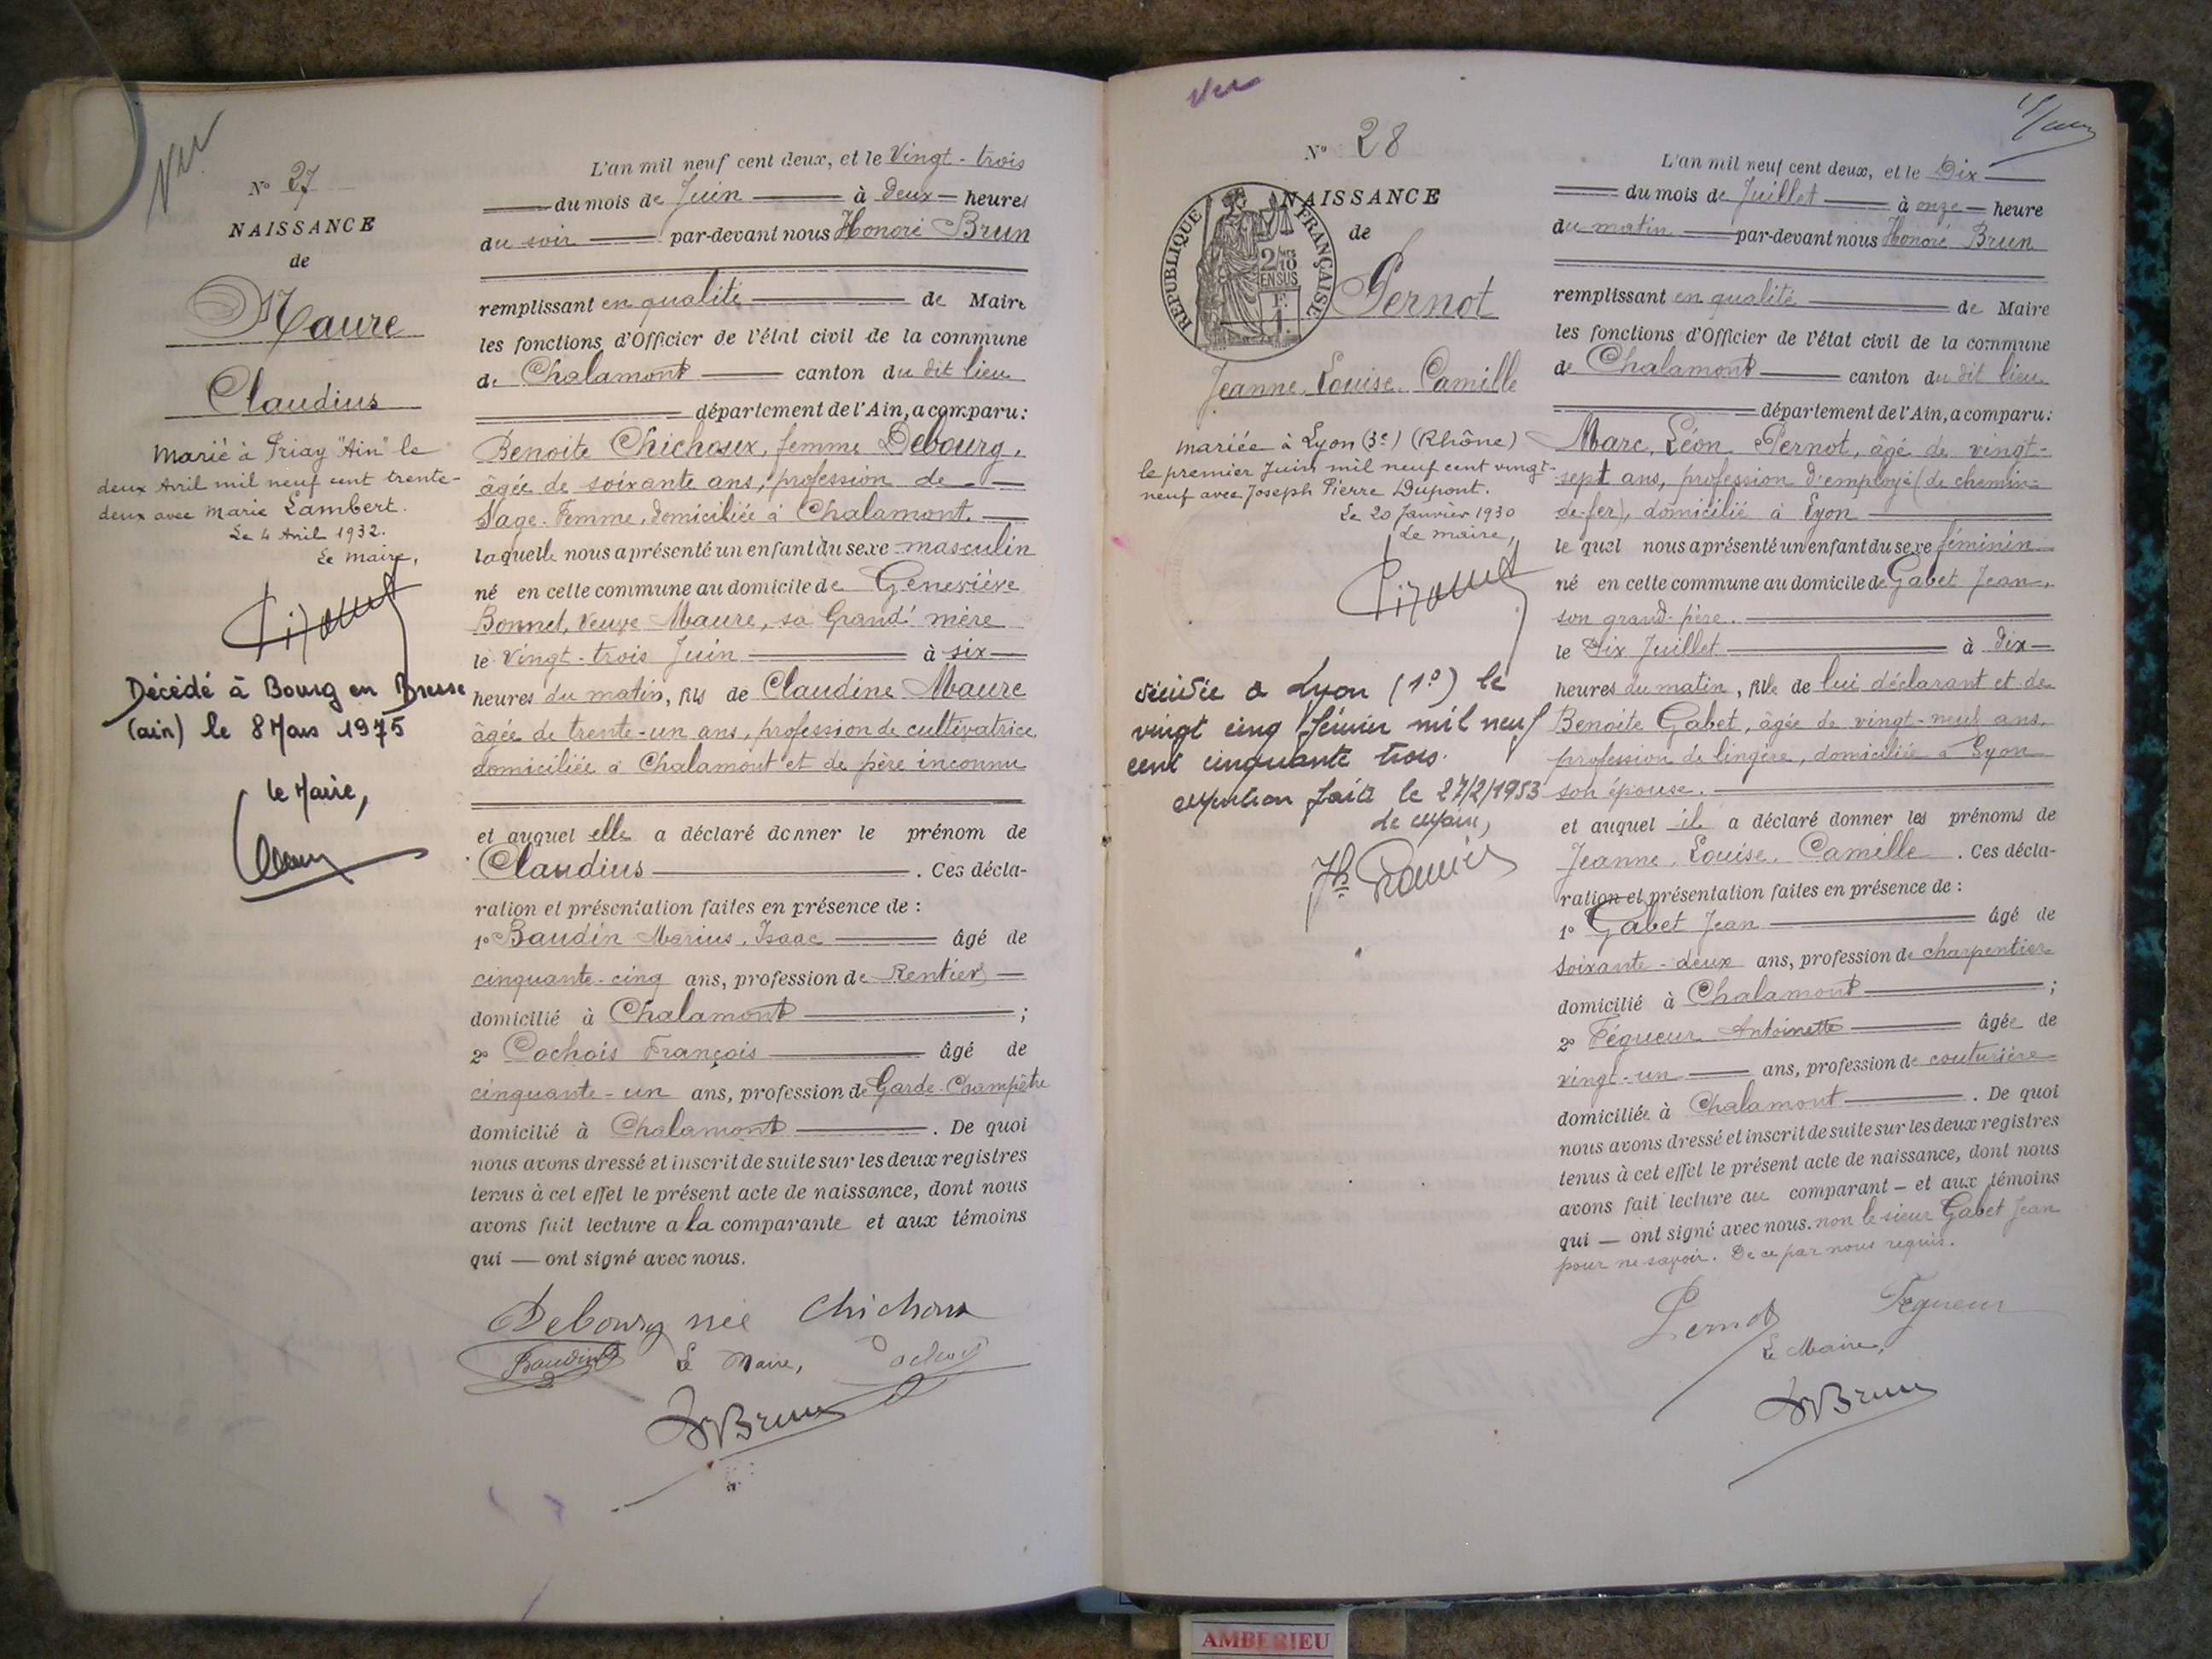 Vu
N° 27
NAISSANCE
de
Maure
Claudius
Marié à Priay "Ain" le
deux Avril mil neuf cent trente-
deux avec Marie Lambert.
Le 4 Avril 1932.
Le maire,
Décédé à Bourg en Bresse
(ain) le 8 Mars 1975
le Maire,
L'an mil neuf cent deux, et le Vingt-trois
du mois de Juin à Deux heures
du soir par-devant nous Honoré Brun
remplissant en qualité de Maire
les fonctions d'Officier de l'état civil de la commune
de Chalamont canton du dit lieu
département de l'Ain, a comparu:
Benoite Chichoux, femme Debourg,
âgée de soixante ans, profession de
Sage-Femme, domiciliée à Chalamont.
laquelle nous a présenté un enfant du sexe masculin
né en cette commune au domicile de Geneviève
Bonnet, Veuve Maure, sa Grand'mère
le Vingt-trois Juin à six
heures du matin, fils de Claudine Maure
âgée de trente-un ans, profession de cultivatrice,
domiciliée à Chalamont et de père inconnu
et auquel elle a déclaré donner le prénom de
Claudius. Ces décla-
ration et présentation faites en présence de :
1° Baudin Marius, Isaac âgé de
cinquante-cinq ans, profession de Rentier
domicilié à Chalamont ;
2° Cochois François âgé de
cinquante-un ans, profession de Garde-Champêtre
domicilié à Chalamont. De quoi
nous avons dressé et inscrit de suite sur les deux registres
tenus à cet effet le présent acte de naissance, dont nous
avons fait lecture a la comparante et aux témoins
qui — ont signé avec nous.
Debourg née Chichoux
Baudin Le Maire, Cochois
HBrun
Vu
N° 28
NAISSANCE
de
REPUBLIQUE FRANÇAISE
2/10
EN SUS
F.
1.
Pernot
Jeanne, Louise, Camille
mariée à Lyon (3e) (Rhône)
le premier Juin mil neuf cent vingt-
neuf avec Joseph Pierre Dupont.
Le 20 Janvier 1930
Le maire,
décédée à Lyon (1°) le
vingt cinq février mil neuf
cent cinquante trois.
Mention faite le 27/2/1953
Le Maire,
L'an mil neuf cent deux, et le Dix
du mois de Juillet à onze heure
du matin par-devant nous Honoré Brun
remplissant en qualité de Maire
les fonctions d'Officier de l'état civil de la commune
de Chalamont canton du dit lieu
département de l'Ain, a comparu:
Marc, Léon Pernot, âgé de vingt-
sept ans, profession d'employé (de chemin-
de-fer), domicilié à Lyon
le quel nous a présenté un enfant du sexe féminin
né en cette commune au domicile de Gabet Jean,
son grand-père.
le Dix Juillet à Dix
heures du matin, fille de lui déclarant et de
Benoite Gabet, âgée de vingt-neuf ans,
profession de lingère, domiciliée à Lyon
son épouse.
et auquel il a déclaré donner les prénoms de
Jeanne, Louise, Camille. Ces décla-
ration et présentation faites en présence de :
1° Gabet Jean âgé de
soixante-deux ans, profession de charpentier
domicilié à Chalamont ;
2° Pégueur Antoinette âgée de
vingt-un ans, profession de couturière
domiciliée à Chalamont. De quoi
nous avons dressé et inscrit de suite sur les deux registres
tenus à cet effet le présent acte de naissance, dont nous
avons fait lecture au comparant — et aux témoins
qui — ont signé avec nous. non le sieur Gabet Jean
pour ne savoir. De ce par nous requis.
Pernot Pégueur
Le Maire,
HBrun
AMBERIEU